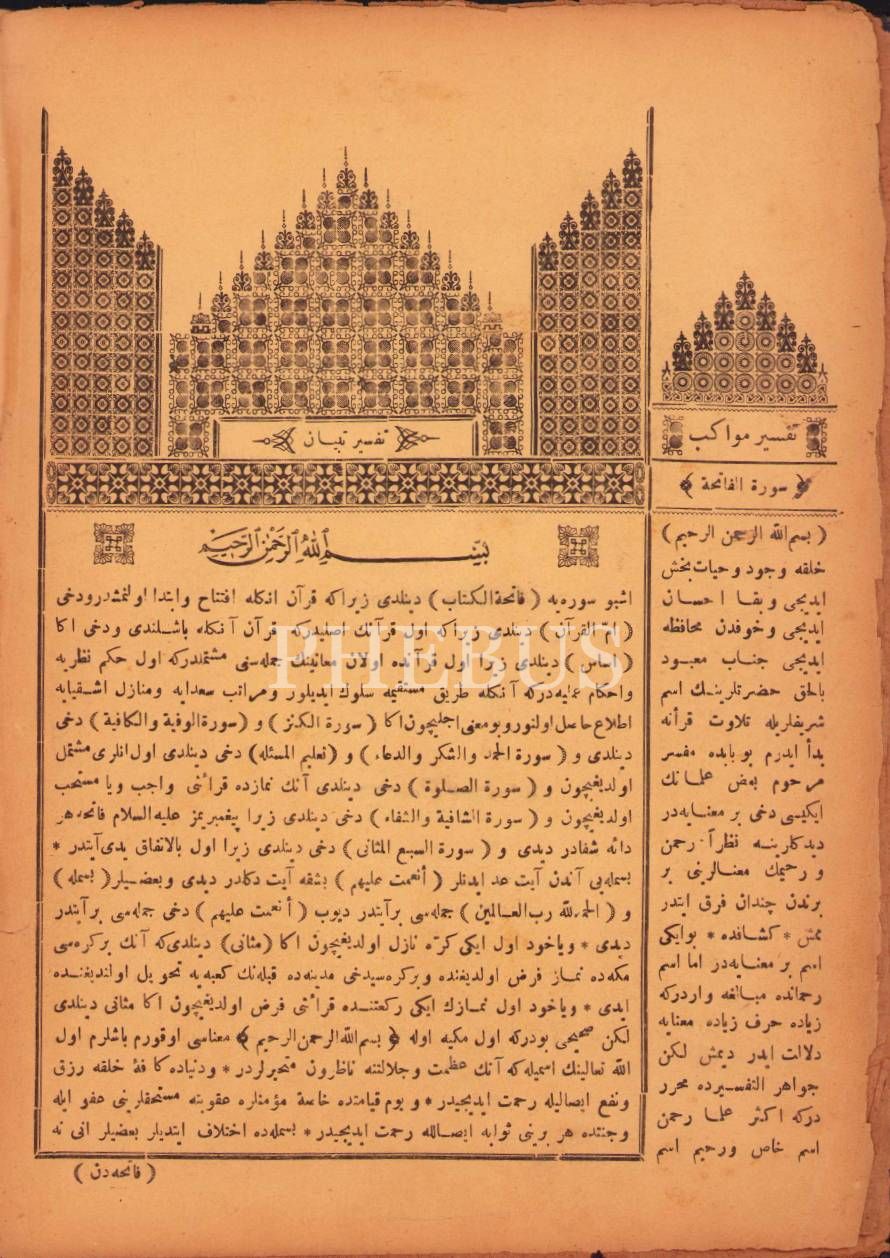 تفسير تبيان
بسم الله الرحمن الرحيم
اشبو سوره‌يه ( فاتحة الكتاب ) دينلدى زيراكه قرآن انكله افتتاح وابتدا اولنمشدر ودخى
( ام القرآن ) دينلدى زيراكه اول قرآنك اصليدركه قرآن آنكله باشلندى ودخى اكا
( اساس ) دينلدى زيرا اول قرآنده اولان معانينك جمله‌سنى مشتملدركه اول حكم نظريه
واحكام عمليه‌دركه آنكله طريق مستقيمه سلوك ايديلور ومراتب سعدايه ومنازل اشقيايه
اطلاع حاصل اولنور وبو معنى اجليچون اكا ( سورة الكنز ) و ( سورة الوفية والكافية ) دخى
دينلدى و ( سورة الحمد والشكر والدعاء ) و ( تعليم المسئله ) دخى دينلدى اول انلرى مشتمل
اولديغيچون و ( سورة الصلوة ) دخى دينلدى آنك نمازده قرائتى واجب ويا مستحب
اولديغيچون و ( سورة الشافية والشفاء ) دخى دينلدى زيرا پيغمبريمز عليه السلام فاتحه هر
دائه شفادر ديدى و ( سورة السبع المثانى ) دخى دينلدى زيرا اول بالاتفاق يدى آيتدر *
بسمله‌يى آندن آيت عد ايدنلر ( أنعمت عليهم ) بشقه آيت دكلدر ديدى وبعضيلر ( بسمله )
و ( الحمد لله رب العالمين ) جمله‌سى بر آيتدر ديوب ( أنعمت عليهم ) دخى جمله‌سى بر آيتدر
ديدى * وياخود اول ايكى كرّه نازل اولديغيچون اكا ( مثانى ) دينلدى كه آنك بر كره‌سى
مكه‌ده نماز فرض اولديغنده وبر كره‌سيدخى مدينه‌ده قبله‌نك كعبه‌يه تحويل اولنديغنده
ايدى * وياخود اول نمازك ايكى ركعتنده قرائتى فرض اولديغيچون اكا مثانى دينلدى
لكن صحيحى بودركه اول مكيه اوله ﴿ بسم الله الرحمن الرحيم ﴾ معناسى اوقورم باشلرم اول
الله تعالينك اسميله كه آنك عظمت وجلالتنه ناظرون متحيرلردر * ودنياده كافۀ خلقه رزق
ونفع ايصاليله رحمت ايديجيدر * ويوم قيامتده خاصة مؤمنلره عقوبته مستحقلرينى عفو ايله
وجنتده هر برينى ثوابه ايصالله رحمت ايديجيدر * بسمله‌ده اختلاف ايتديلر بعضيلر انى نه
( فاتحه دن )
تفسير مواكب
﴿ سورة الفاتحة ﴾
( بسم الله الرحمن الرحيم )
خلقه وجود وحيات بخش
ايديجى وبقا احسان
ايديجى وخوفدن محافظه
ايديجى جناب معبود
بالحق حضرتلرينك اسم
شريفلريله تلاوت قرآنه
بدأ ايدرم بو بابده مفسر
مرحوم بعض علمانك
ايكيسى دخى بر معنايه‌در
ديدكلرينه نظراً رحمن
ورحيمك معنالرينى بر
برندن چندان فرق ايتدر
ممش * كشافده * بو ايكى
اسم بر معنايه‌در اما اسم
رحمانده مبالغه واردركه
زياده حرف زياده معنايه
دلالت ايدر ديمش لكن
جواهر التفسيرده محرر
دركه اكثر علما رحمن
اسم خاص ورحيم اسم
PHEBUS